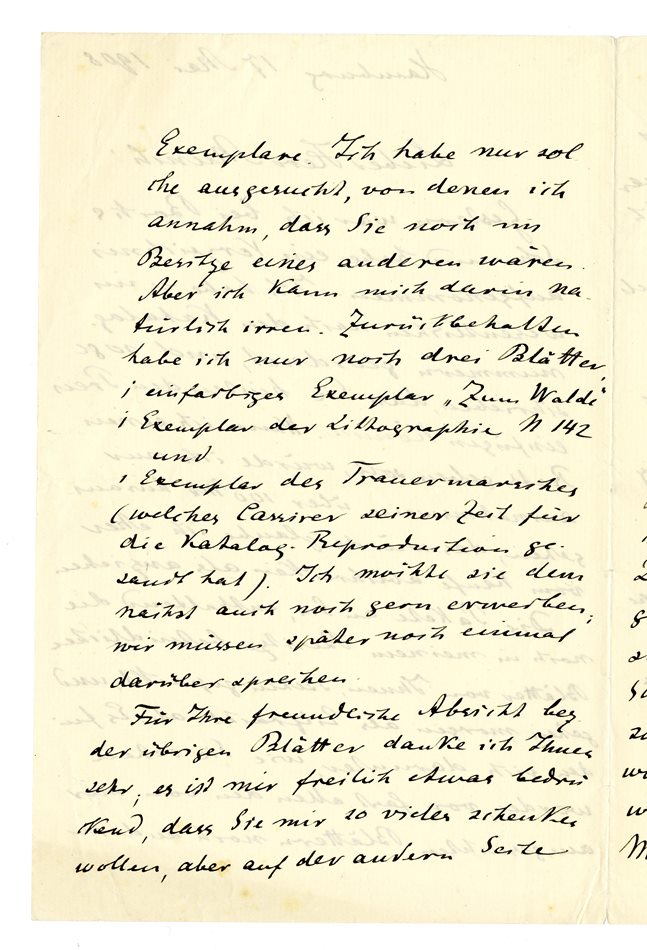 Exemplare. Ich habe nur sol
che ausgesucht, von denen ich
annahm, dass Sie noch im
Besitze eines anderen wären.
Aber ich kann mich darin na-
türlich irren. Zurückbehalten
habe ich nur noch drei Blätter,
1 einfarbiges Exemplar „Zum Walde"
1 Exemplar der Lithographie N 142
und
1 Exemplar des Trauermarsches
(welches Cassirer seiner Zeit für
die Katalog-Reproduction ge-
sandt hat). Ich möchte sie dem
nächst auch noch gern erwerben,
wir müssen später noch einmal
darüber sprechen.
Für Ihre freundliche Absicht bez
der übrigen Blätter danke ich Ihnen
sehr, es ist mir freilich etwas bedrü
ckend, dass Sie mir so vieles schenken
wollen, aber auf der andern Seite